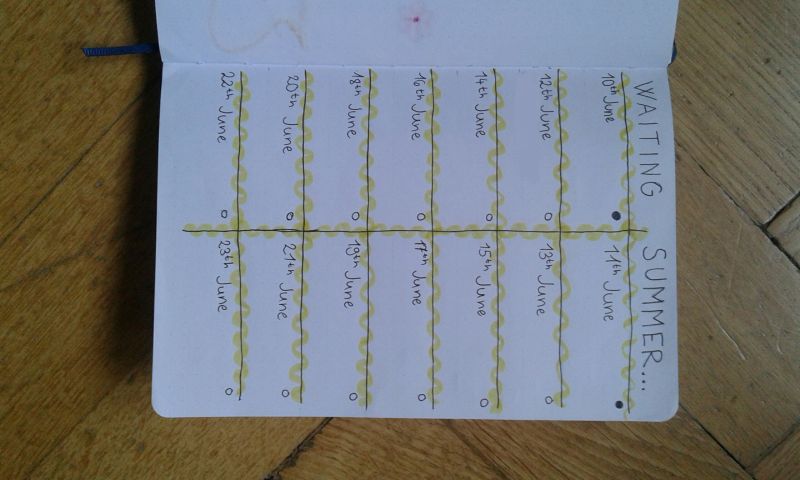 WAITING SUMMER...
10th June 11th June
12th June 13th June
14th June 15th June
16th June 17th June
18th June 19th June
20th June 21th June
22th June 23th June